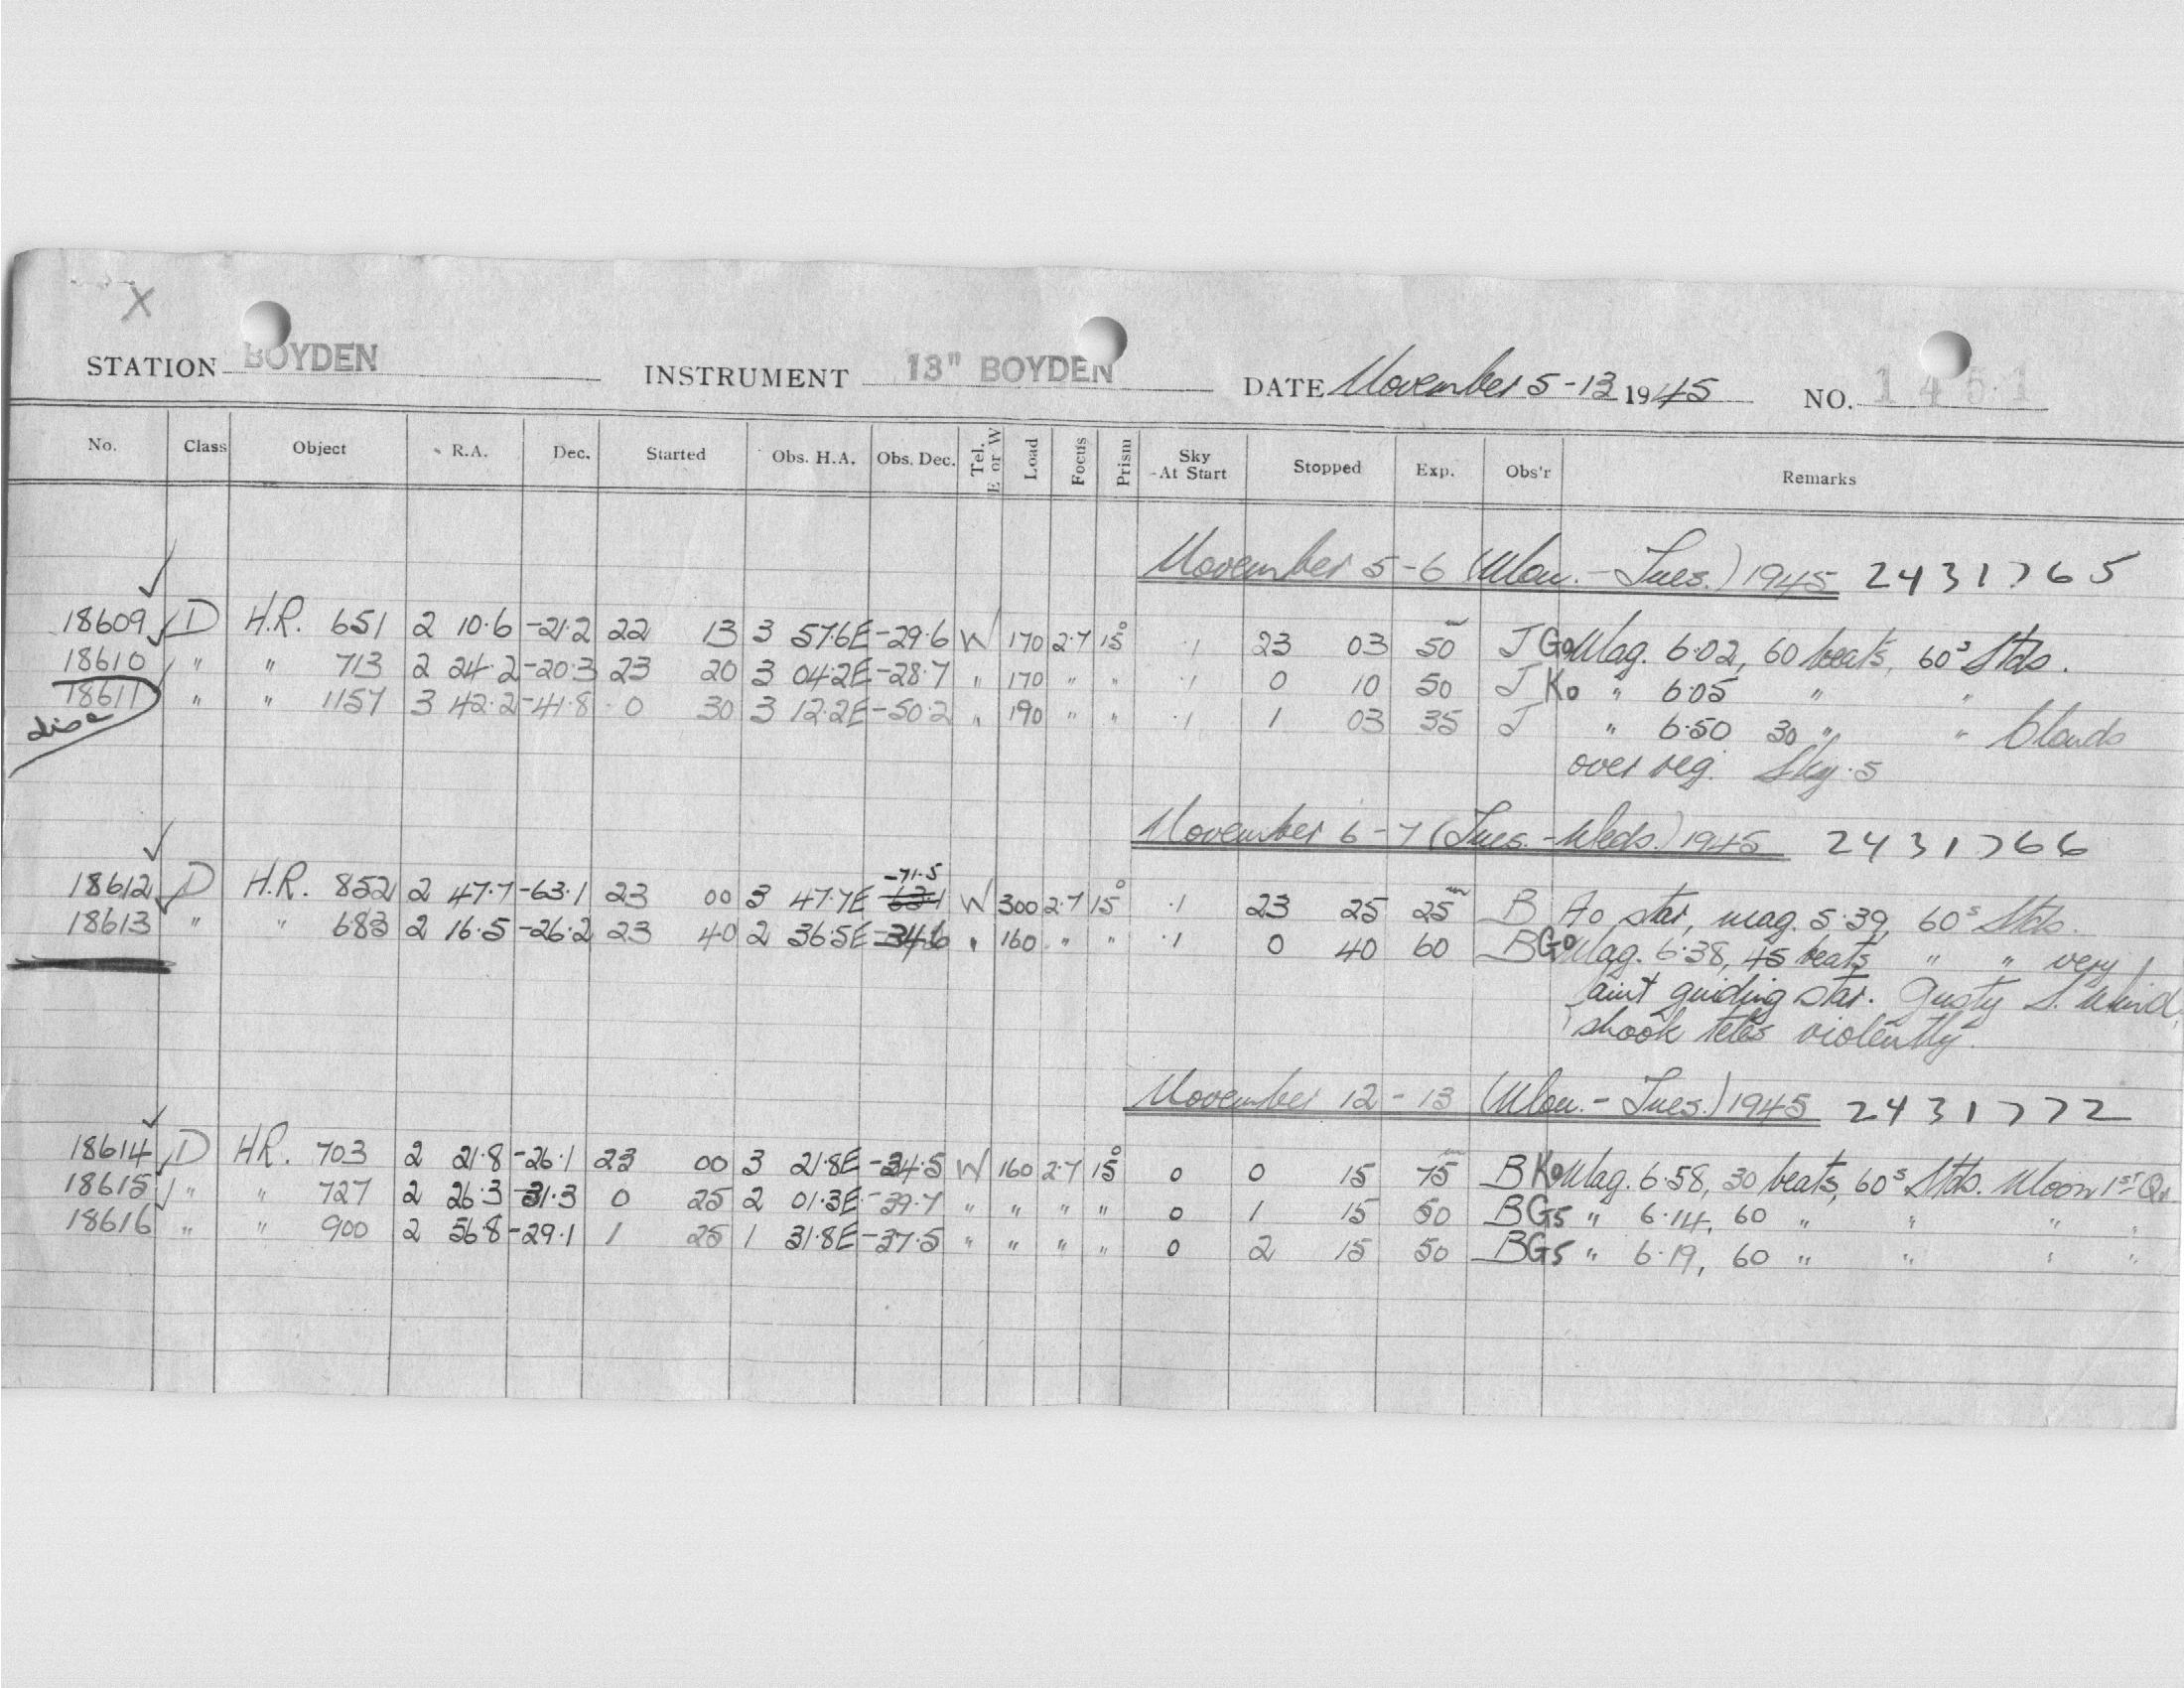 X
STATION BOYDEN INSTRUMENT 13" BOYDEN DATE November 5-13 1945 NO. 1461
No. Class Object R.A. Dec. Started Obs. H.A. Obs. Dec. Tel. E or W Load Focus Prism Sky At Start Stopped Exp. Obs'r Remarks
November 5-6 (Mon.-Tues.) 1945 2431765
18609 D H.R. 651 2 10.6 -21.2 22 13 3 57.6E -29.6 W 170 2.7 15° .1 23 03 50 J G0 Mag. 6.02, 60 beats, 60s Stds.
18610 " " 713 2 24.2 -20.3 23 20 3 04.2E -28.7 " 170 " " .1 0 10 50 J K0 " 6.05 " "
18611 " " 1157 3 42.2 -41.8 0 30 3 12.2E -50.2 " 190 " " .1 1 03 35 J " 6.50 30 " " Clouds
disc
over reg. Sky .5
November 6-7 (Tues.-Weds.) 1945 2431766
-71.5
18612 D H.R. 852 2 47.7 -63.1 23 00 3 47.7E 63.1 W 300 2.7 15° .1 23 25 25m B A0 star, mag. 5.39, 60s Stds.
18613 " " 683 2 16.5 -26.2 23 40 2 36.5E -34.6 " 160 " " .1 0 40 60 B G0 Mag. 6.38, 45 beats " " very
faint guiding star. Gusty S. Wind,
shook teles violently.
November 12-13 (Mon.-Tues.) 1945 2431772
18614 D HR. 703 2 21.8 -26.1 23 00 3 21.8E -34.5 W 160 2.7 15° 0 0 15 75m B K0 Mag. 6.58, 30 beats, 60s Stds. Moon 1st Qr.
18615 " " 727 2 26.3 -31.3 0 25 2 01.3E -39.7 " " " " 0 1 15 50 B G5 " 6.14, 60 " " " "
18616 " " 900 2 56.8 -29.1 1 25 1 31.8E -37.5 " " " " 0 2 15 50 B G5 " 6.19, 60 " " " "